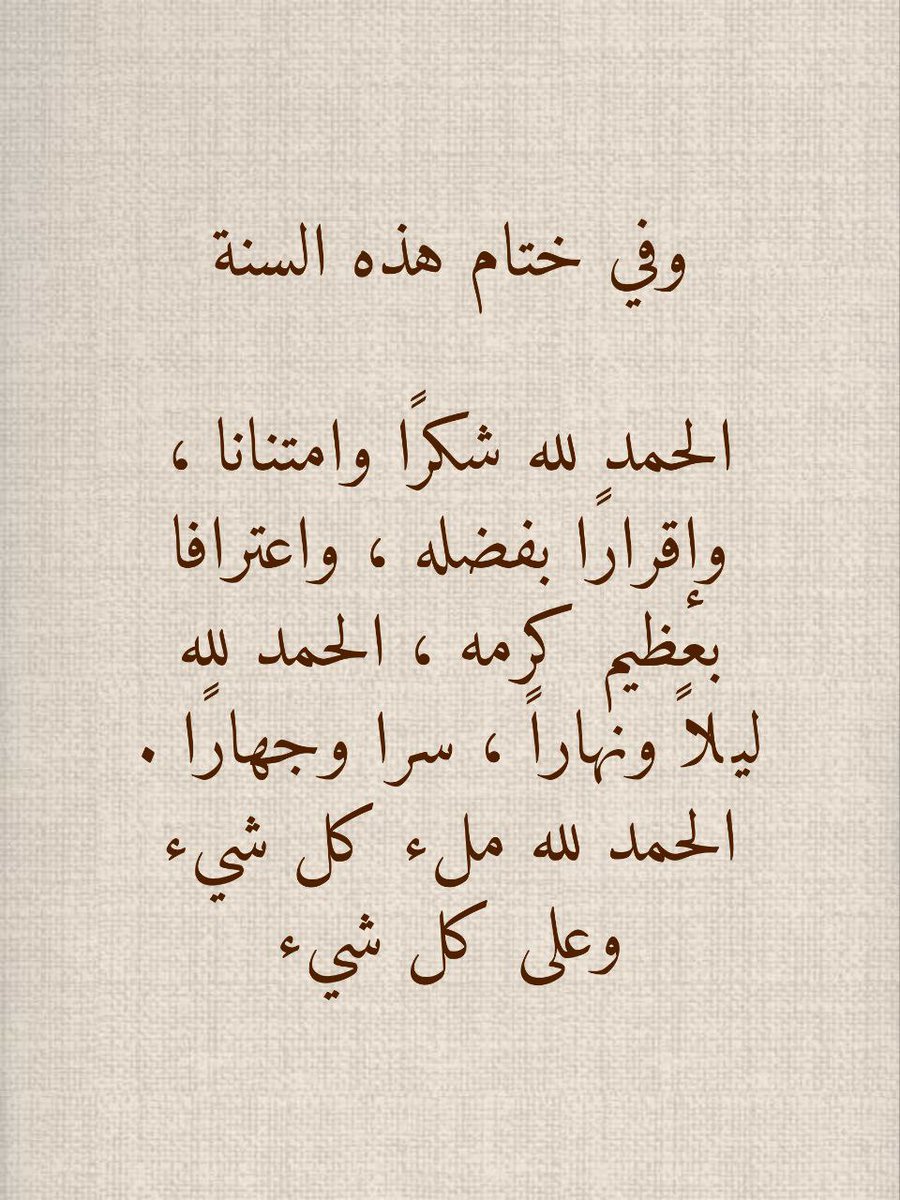 وفي ختام هذه السنة
الحمد لله شكرًا وامتنانا ،
وإقرارًا بفضله ، واعترافا
بعظيم كرمه ، الحمد لله
ليلاً ونهاراً ، سرا وجهارًا .
الحمد لله ملء كل شيء
وعلى كل شيء